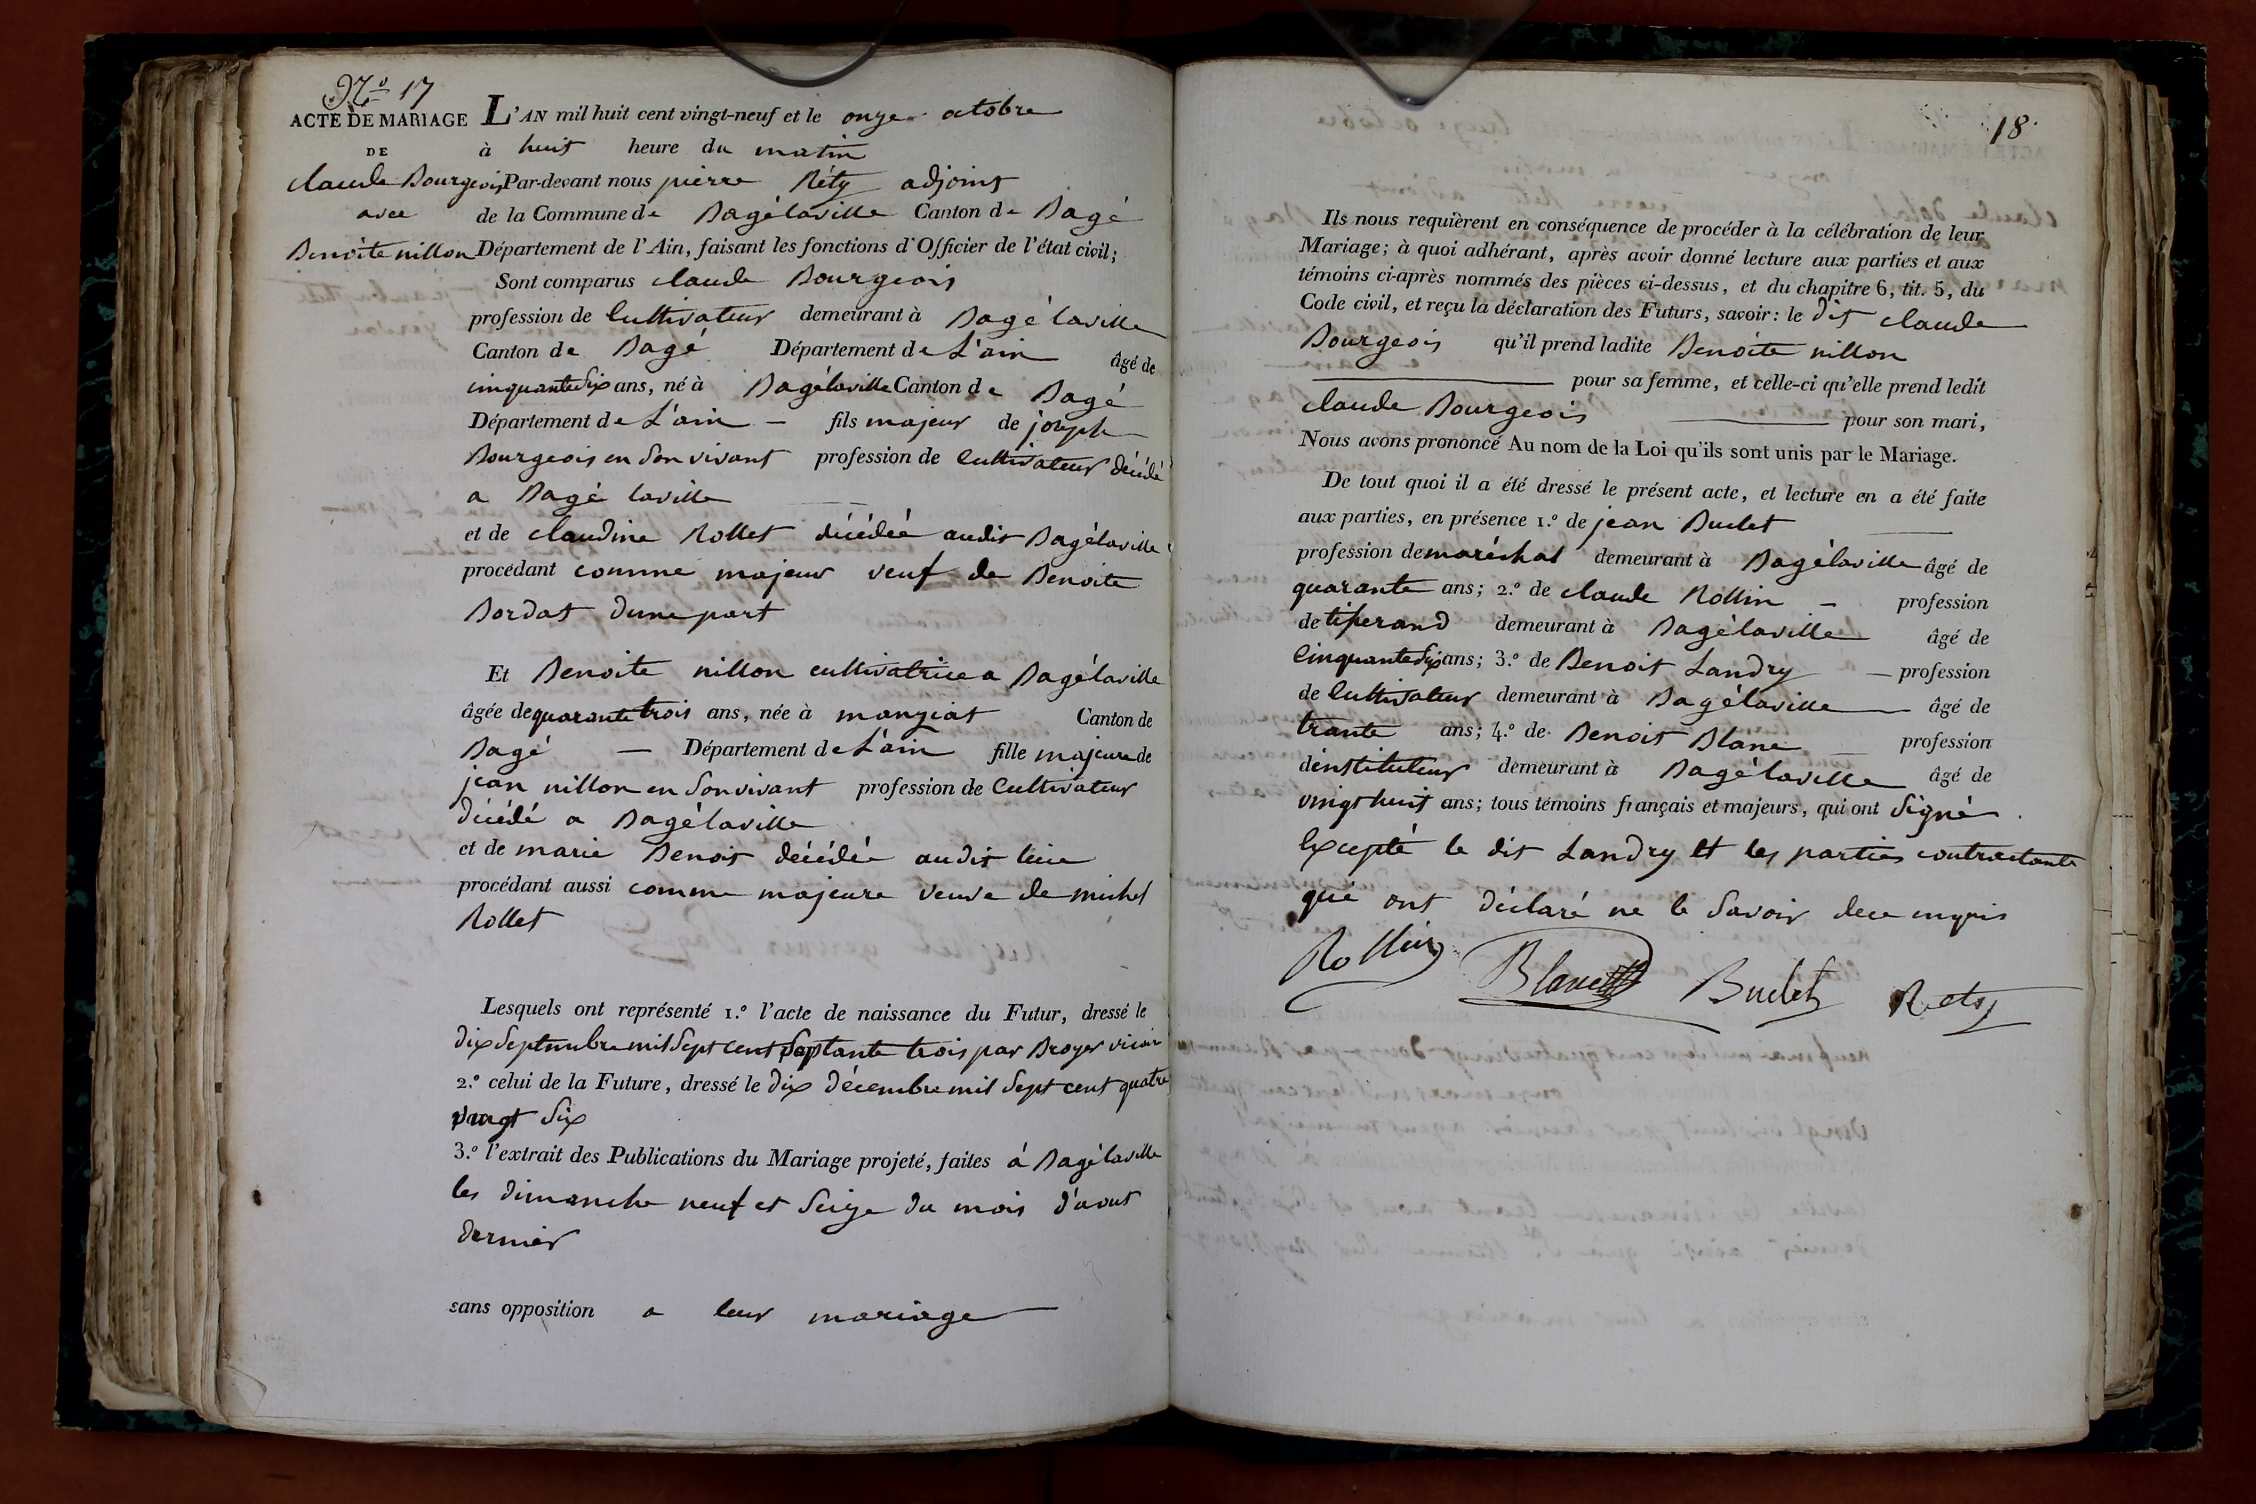 N.° 17
ACTE DE MARIAGE
DE
claude Bourgeois
avec
Benoite nillon
L'AN mil huit cent vingt-neuf et le onze octobre
à huit heure du matin
Par-devant nous pierre Réty adjoint
de la Commune de Bagélaville Canton de Bagé
Département de l'Ain, faisant les fonctions d'Officier de l'état civil;
Sont comparus claude Bourgeois
profession de Cultivateur demeurant à Bagé laville
Canton de Bagé Département de L'ain âgé de
cinquante six ans, né à Bagélaville Canton de Bagé
Département de L'ain — fils majeur de joseph
Bourgeois en son vivant profession de Cultivateur décédé
a Bagé laville
et de claudine Rollet décédée audit Bagélaville
procédant comme majeur veuf de Benoite
Bordat d'une part
Et Benoite nillon cultivatrice a Bagélaville
âgée de quarante trois ans, née à manziat Canton de
Bagé — Département de L'ain fille majeure de
jean nillon en son vivant profession de Cultivateur
décédé a Bagélaville
et de marie Benoit décédée audit lieu
procédant aussi comme majeure veuve de michel
Rollet
Lesquels ont représenté 1.° l'acte de naissance du Futur, dressé le
dix Septembre mil Sept cent Septante trois par Broyer vicair
2.° celui de la Future, dressé le dix décembre mil Sept cent quatre
vingt Six
3.° l'extrait des Publications du Mariage projeté, faites à Bagélaville
les dimanche neuf et Seize du mois d'aout
dernier
sans opposition a leur mariage
18.
Ils nous requièrent en conséquence de procéder à la célébration de leur
Mariage; à quoi adhérant, après avoir donné lecture aux parties et aux
témoins ci-après nommés des pièces ci-dessus, et du chapitre 6, tit. 5, du
Code civil, et reçu la déclaration des Futurs, savoir: le dit claude
Bourgeois qu'il prend ladite Benoite nillon
pour sa femme, et celle-ci qu'elle prend ledit
claude Bourgeois pour son mari,
Nous avons prononcé Au nom de la Loi qu'ils sont unis par le Mariage.
De tout quoi il a été dressé le présent acte, et lecture en a été faite
aux parties, en présence 1.° de jean Buclet
profession de maréchal demeurant à Bagélaville âgé de
quarante ans; 2.° de claude Rollin — profession
de tiserand demeurant à Bagélaville âgé de
Cinquante Six ans; 3.° de Benoit Landry — profession
de Cultivateur demeurant à Bagélaville âgé de
trante ans; 4.° de Benoit Blanc — profession
d'instituteur demeurant à Bagélaville âgé de
vingt huit ans; tous témoins français et majeurs, qui ont Signé
Excepté le dit Landry et les parties contractante
qui ont déclaré ne le Savoir dece enquis
Rollin Blanc Buclet Rety